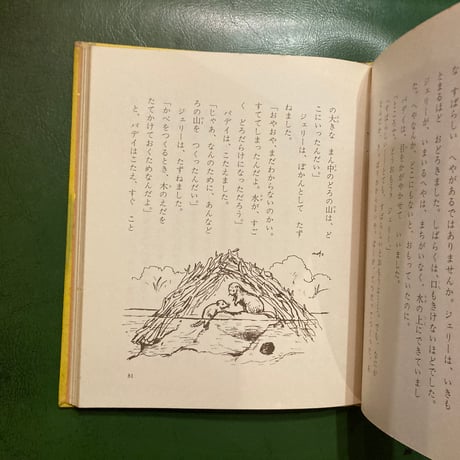 な すばらしい へやがあるではありませんか。ジェリーは、いきも
とまるほど おどろきました。しばらくは、口もきけないほどでした。
ジェリーが、いまいるへやは、まちがいなく、水の上にできていまし
た。へやなんか、どこにもないと、おもっていたのに。
の大きな まん中のどろの山は、ど
こにいったんだい。」
ジェリーは、ぽかんとして たず
ねました。
「おやおや、まだわからないのかい。
すててしまったんだよ。水が、すご
く どろだらけになっただろう。」
パディは、こたえました。
「じゃあ、なんのために、あんなど
ろの山を つくったんだい。」
ジェリーは、たずねました。
「かべをつくるとき、木のえだを
たてかけておくためなんだよ。」
と、パディはこたえ、すぐ こと
81